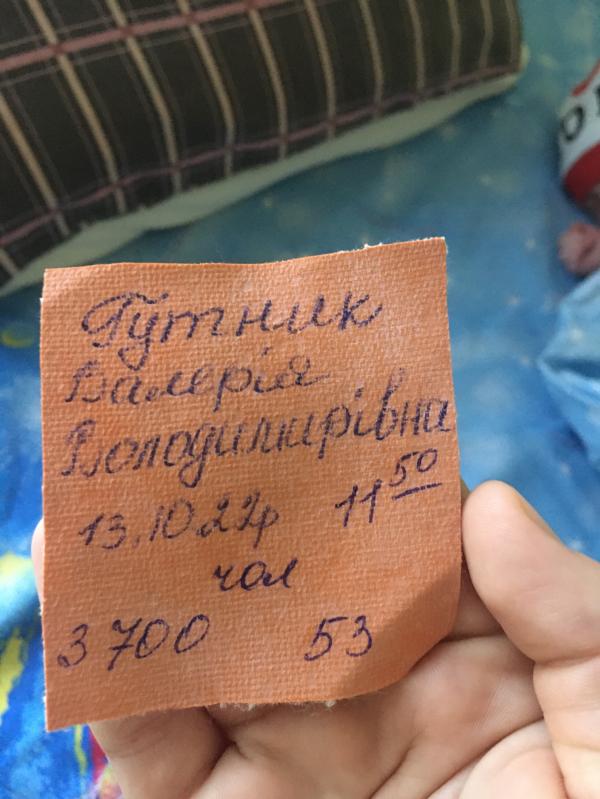 Гутник
Валерія
Володимирівна
13.10.22р 11 50
чол
3 700 53